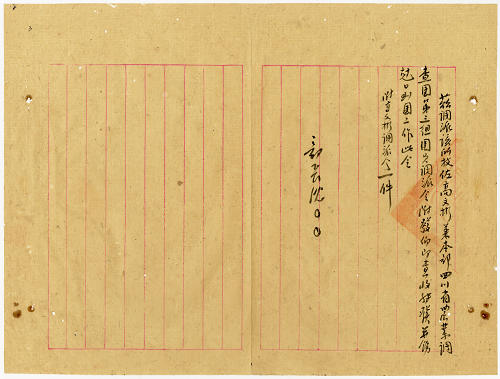 茲調派該所技佐高文彬兼本部四川省農業調
查團第三組團員調派令附發仰即查收轉發并飭
尅日到團工作此令
附高文彬調派令一件
部長沈○○